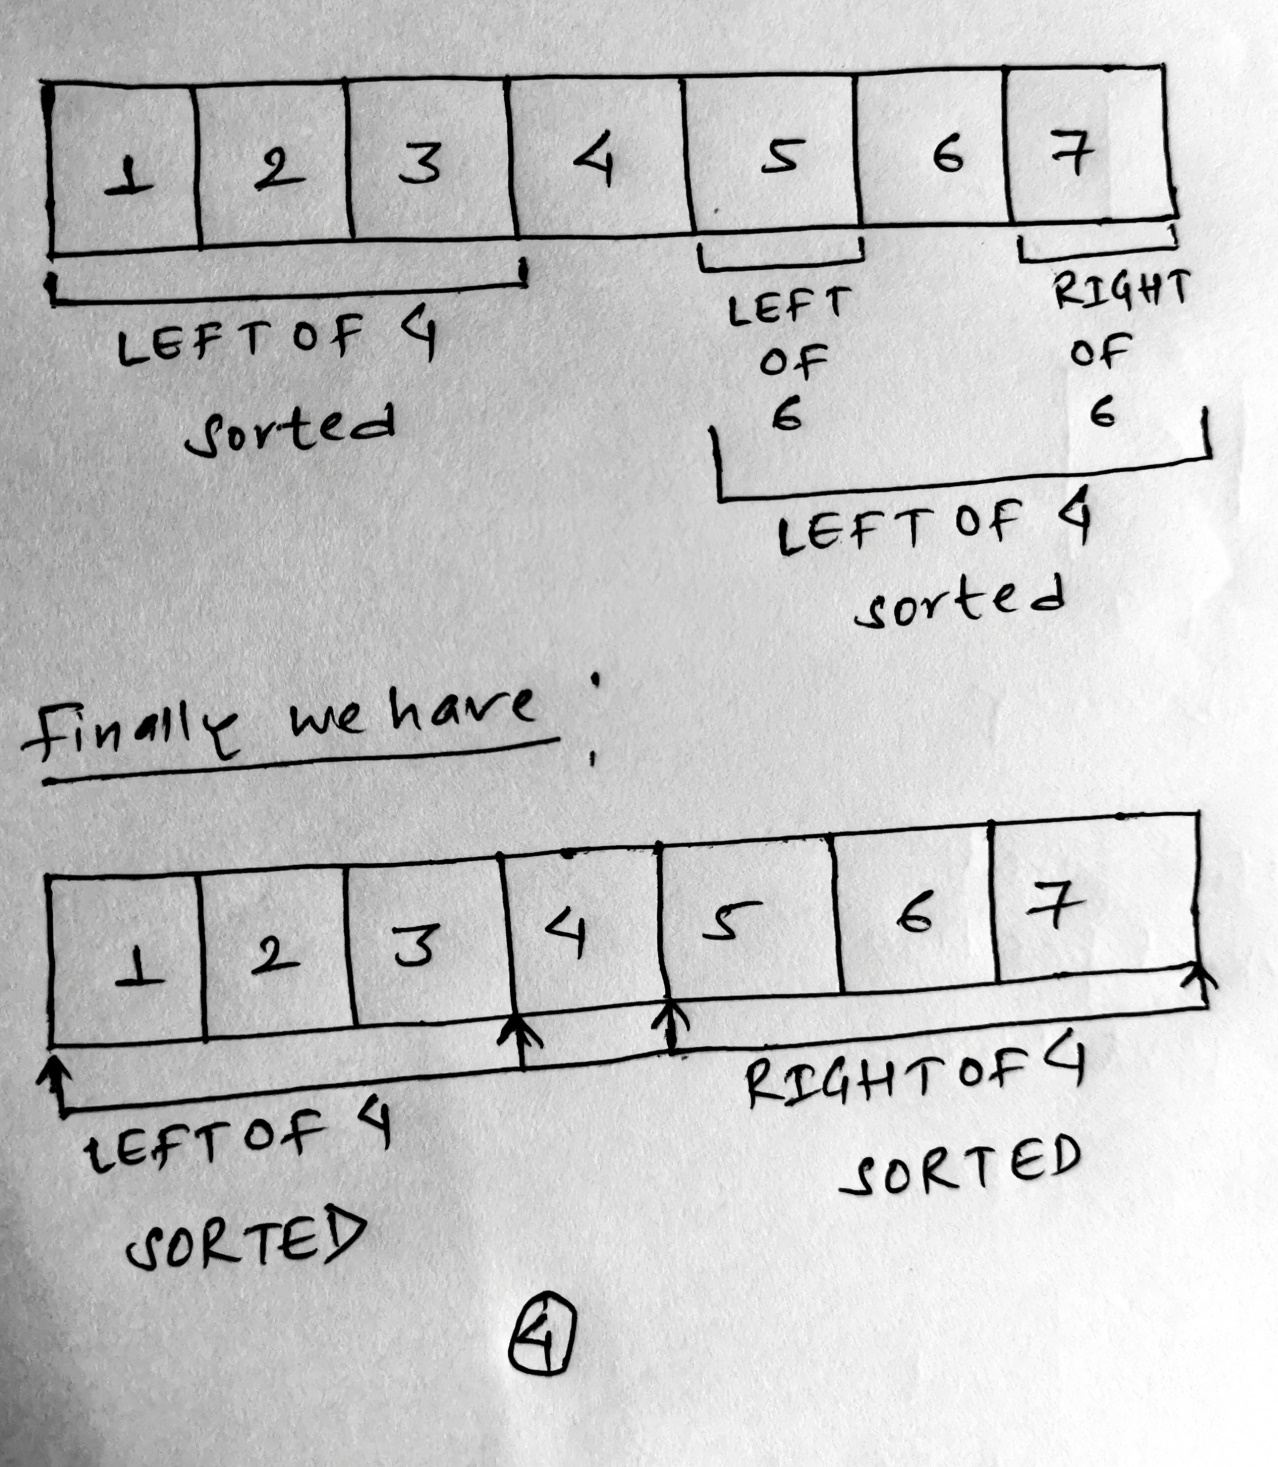 1 2 3 4 5 6 7
LEFT OF 4
sorted
LEFT
OF
6
RIGHT
OF
6
LEFT OF 4
sorted
Finally we have :
1 2 3 4 5 6 7
LEFT OF 4
SORTED
RIGHT OF 4
SORTED
4